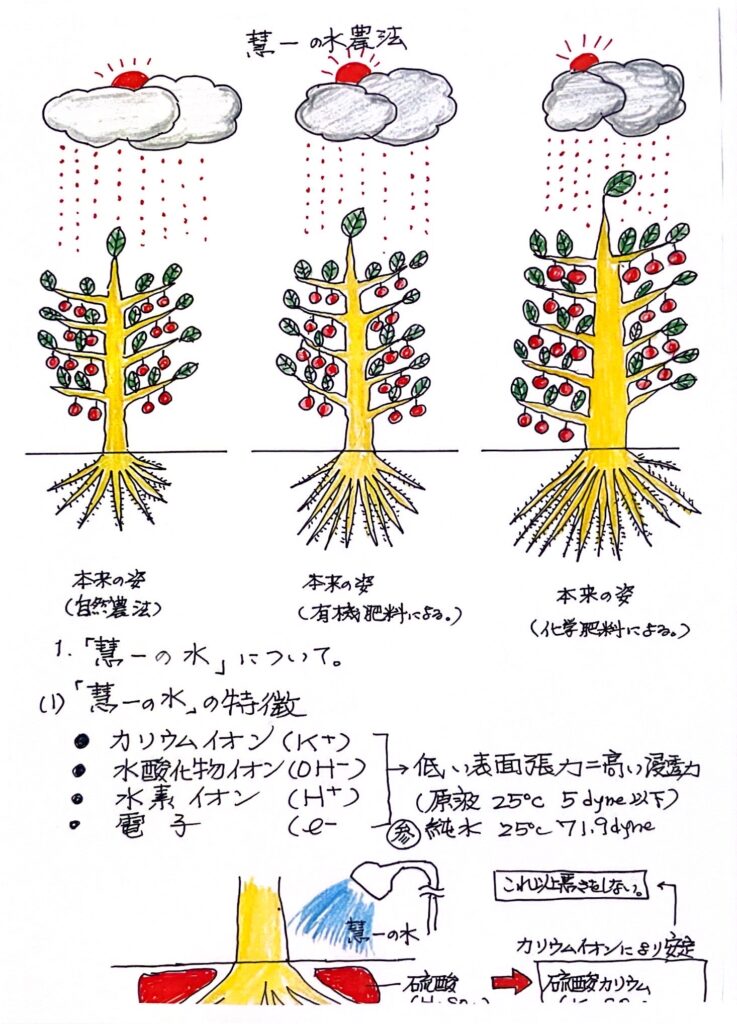 慧一の水農法
本来の姿
(自然農法)
本来の姿
(有機肥料による。)
本来の姿
(化学肥料による。)
1.「慧一の水」について。
(1)「慧一の水」の特徴
● カリウムイオン (K+)
● 水酸化物イオン (OH-)
● 水素イオン (H+)
● 電子 (e-
→ 低い表面張力=高い浸透力
(原液 25℃ 5dyne以下)
参 純水 25℃ 71.9dyne
慧一の水
これ以上悪さをしない。
カリウムイオンにより安定
硫酸
硫酸カリウム